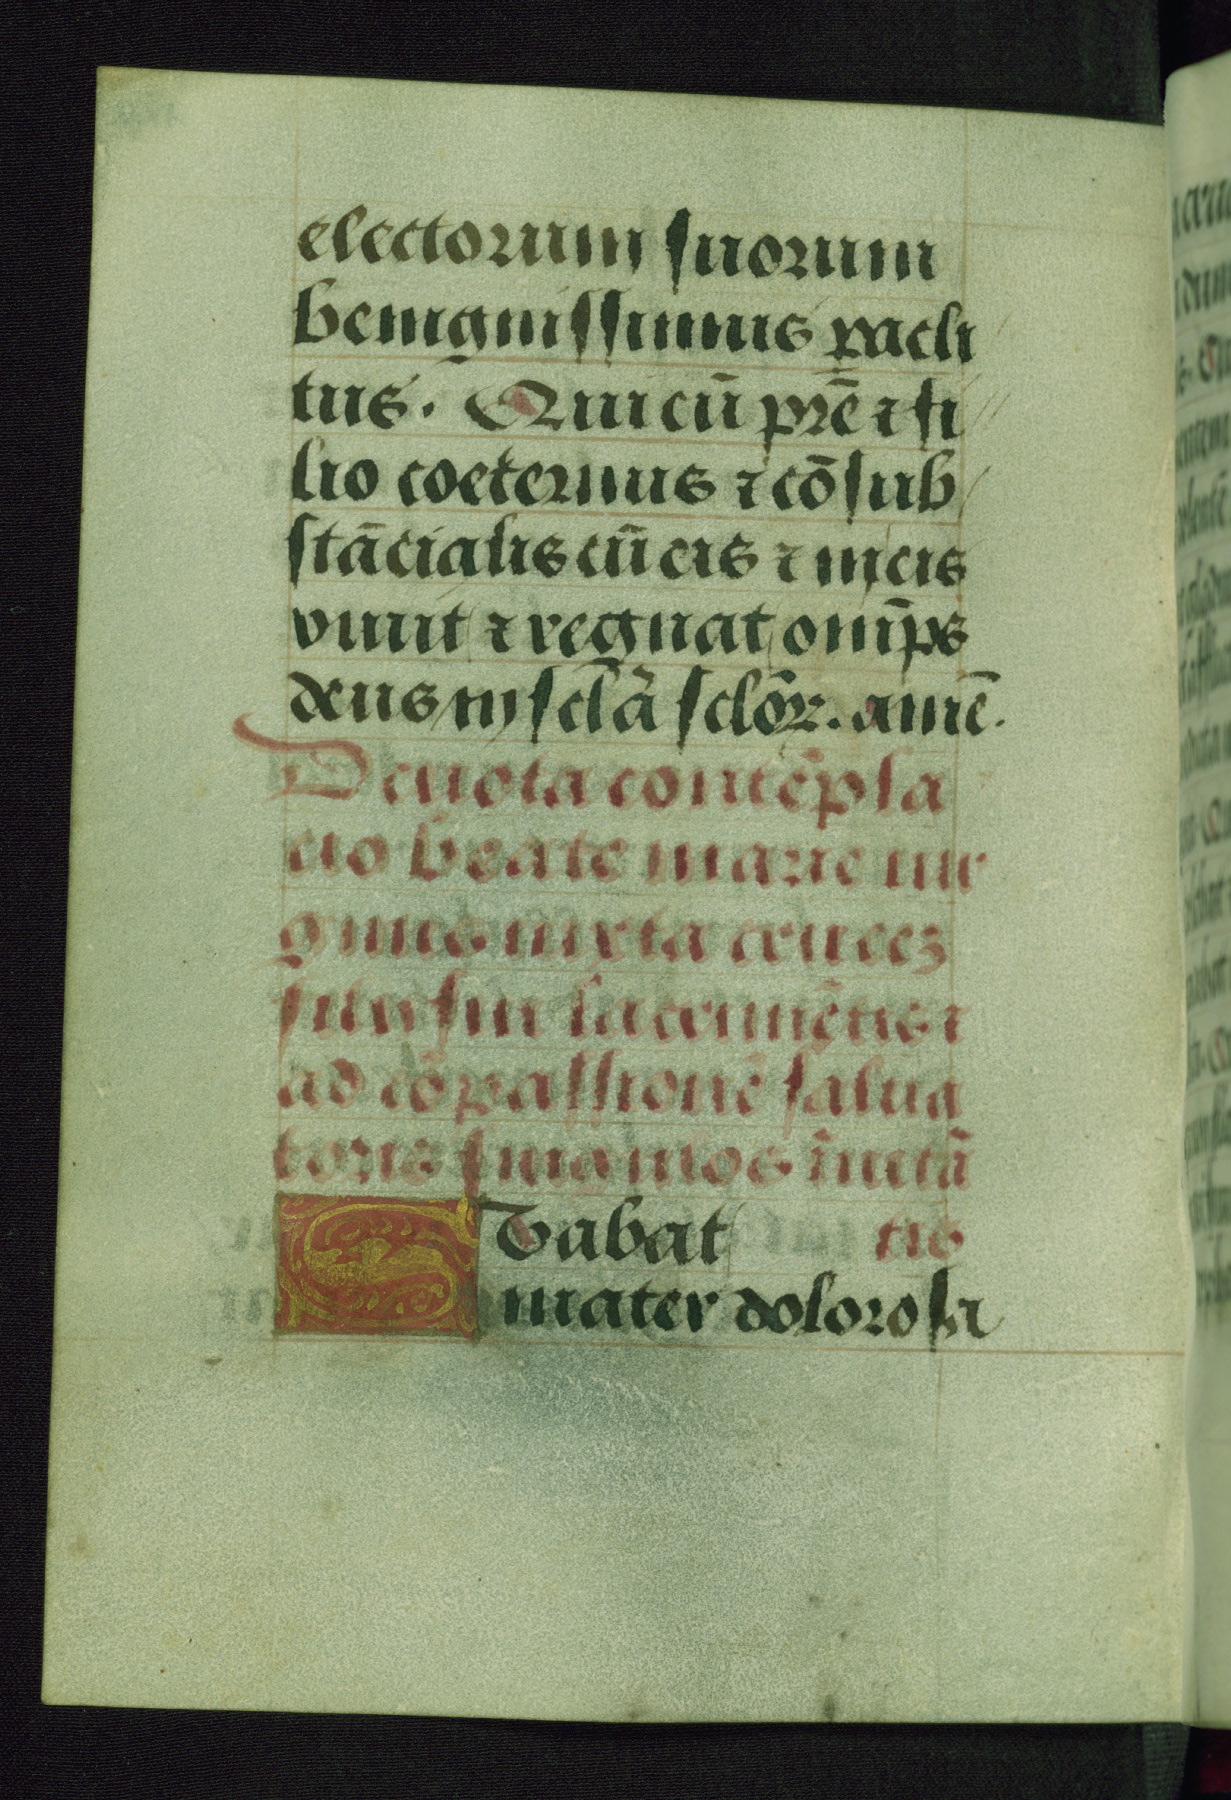 electorum suorum
benignissimus p̱acli
tus. Qui cū pr̄e ⁊ fi
lio coeternus ⁊ cōsub
stācialis cū eis ⁊ in eis
viuit ⁊ regnat om̄ps
deus in scl̄a sclōꝝ. amē.
Deuota contēpla
cio beate marie uir
ginis iuxta crucez
filij sui lacrimētis ⁊
ad cōpassionē salua
toris singulos inuitā
tis
Stabat
mater dolorosa